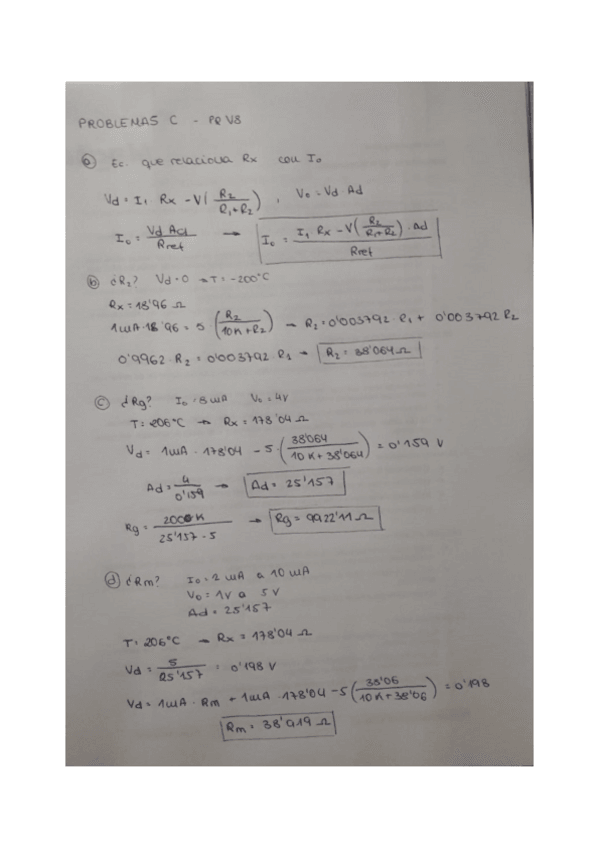 PROBLEMAS C - PR V8
a) Ec. que relaciona Rx con Io
Vd = I1 · Rx - V(R2/(R1+R2)) , Vo = Vd · Ad
Io = (Vd · Ad)/Rref → Io = (I1 · Rx - V(R2/(R1+R2)) · Ad)/Rref
b) ¿R2? Vd = 0 → T = -200°C
Rx = 18'96 Ω
1mA · 18'96 = 5 (R2/(10K+R2)) → R2 = 0'003792 · R1 + 0'003792 R2
0'9962 · R2 = 0'003792 · R1 → R2 = 38'064 Ω
c) ¿Rg? Io = 8 mA Vo = 4V
T = 206°C → Rx = 178'04 Ω
Vd = 1mA · 178'04 - 5 · (38'064/(10K+38'064)) = 0'159 V
Ad = 4/0'159 → Ad = 25'157
Rg = 200K/(25'157-5) → Rg = 9922'11 Ω
d) ¿Rm? Io = 2 mA a 10 mA
Vo = 1V a 5V
Ad = 25'157
T = 206°C → Rx = 178'04 Ω
Vd = 5/25'157 = 0'198 V
Vd = 1mA · Rm + 1mA · 178'04 - 5(38'06/(10K+38'06)) = 0'198
Rm = 38'919 Ω